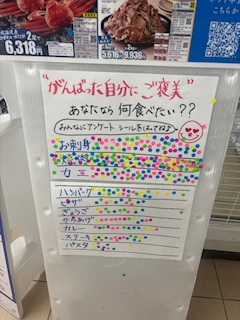 2尾で
6,318円
5,616円 9,936円
こちらか
"がんばった自分に ご褒美"
あなたなら 何食べたい??
みんなにアンケート シールをはってね♪
お刺身
カニ
ハンバーグ
ピザ
ぎょうざ
からあげ
カレー
ステーキ
パスタ